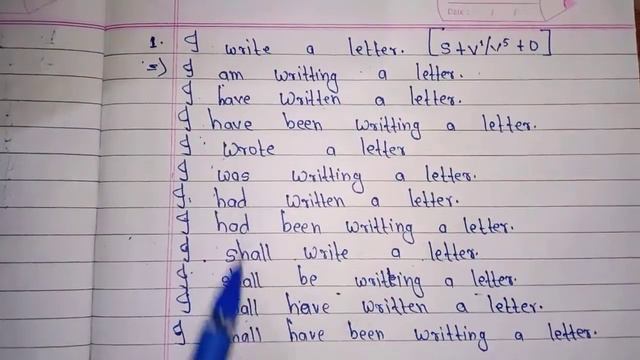 1. I write a letter. [S+V¹/V⁵+O]
=) I am writting a letter.
I have written a letter.
I have been writting a letter.
I wrote a letter
I was writting a letter.
I had written a letter.
I had been writting a letter.
I shall write a letter.
I shall be writting a letter.
I shall have written a letter.
I shall have been writting a letter.